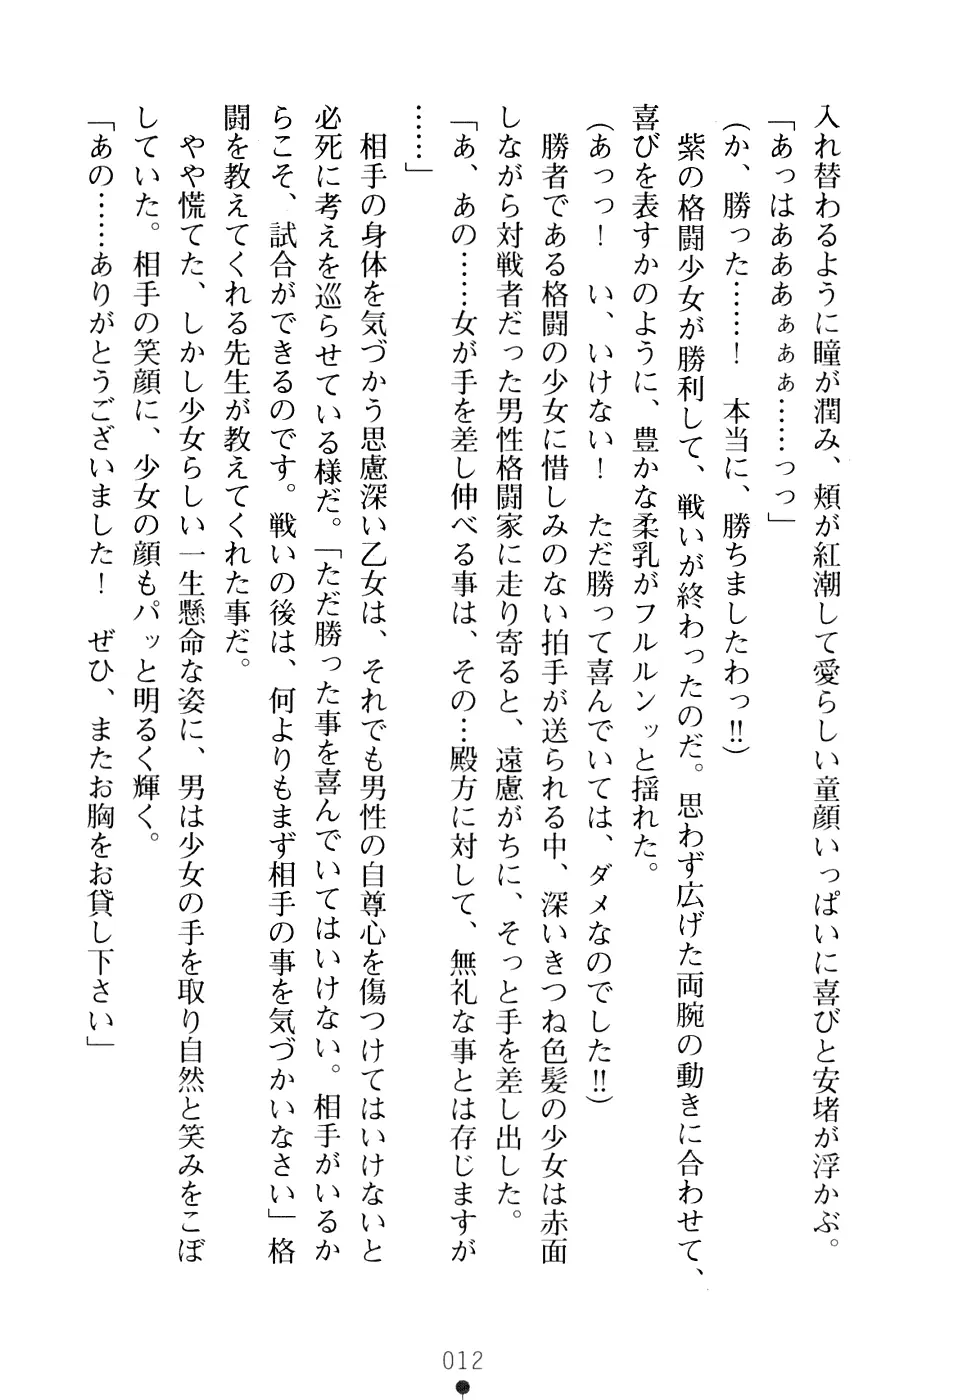 入れ替わるように瞳が潤み、頬が紅潮して愛らしい童顔いっぱいに喜びと安堵が浮かぶ。
「あっはあああぁぁぁ……っっ」
（か、勝った……！　本当に、勝ちましたわっ!!）
　紫の格闘少女が勝利して、戦いが終わったのだ。思わず広げた両腕の動きに合わせて、
喜びを表すかのように、豊かな柔乳がフルルンッと揺れた。
（あっっ！　い、いけない！　ただ勝って喜んでいては、ダメなのでした!!）
　勝者である格闘の少女に惜しみのない拍手が送られる中、深いきつね色髪の少女は赤面
しながら対戦者だった男性格闘家に走り寄ると、遠慮がちに、そっと手を差し出した。
「あ、あの……女が手を差し伸べる事は、その…殿方に対して、無礼な事とは存じますが
……」
　相手の身体を気づかう思慮深い乙女は、それでも男性の自尊心を傷つけてはいけないと
必死に考えを巡らせている様だ。「ただ勝った事を喜んでいてはいけない。相手がいるか
らこそ、試合ができるのです。戦いの後は、何よりもまず相手の事を気づかいなさい」格
闘を教えてくれる先生が教えてくれた事だ。
　やや慌てた、しかし少女らしい一生懸命な姿に、男は少女の手を取り自然と笑みをこぼ
していた。相手の笑顔に、少女の顔もパッと明るく輝く。
「あの……ありがとうございました！　ぜひ、またお胸をお貸し下さい」
012